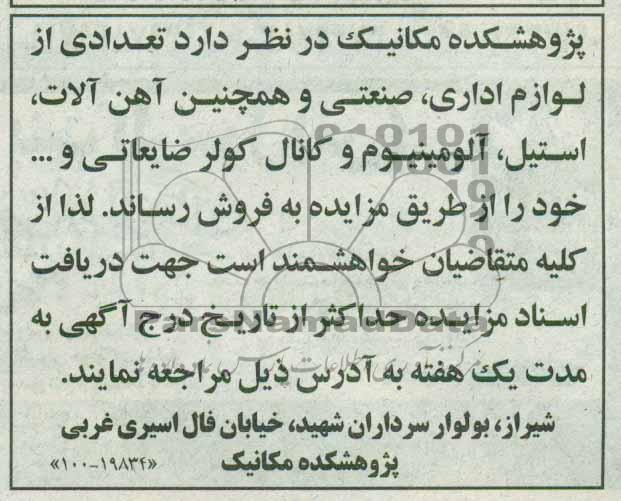 پژوهشکده مکانیک در نظر دارد تعدادی از
لوازم اداری، صنعتی و همچنین آهن آلات،
استیل، آلومینیوم و کانال کولر ضایعاتی و ...
خود را از طریق مزایده به فروش رساند. لذا از
کلیه متقاضیان خواهشمند است جهت دریافت
اسناد مزایده حداکثر از تاریخ درج آگهی به
مدت یک هفته به آدرس ذیل مراجعه نمایند.
شیراز، بولوار سرداران شهید، خیابان فال اسیری غربی
پژوهشکده مکانیک
«۱۰۰-۱۹۸۳۴»
ParsNamadData